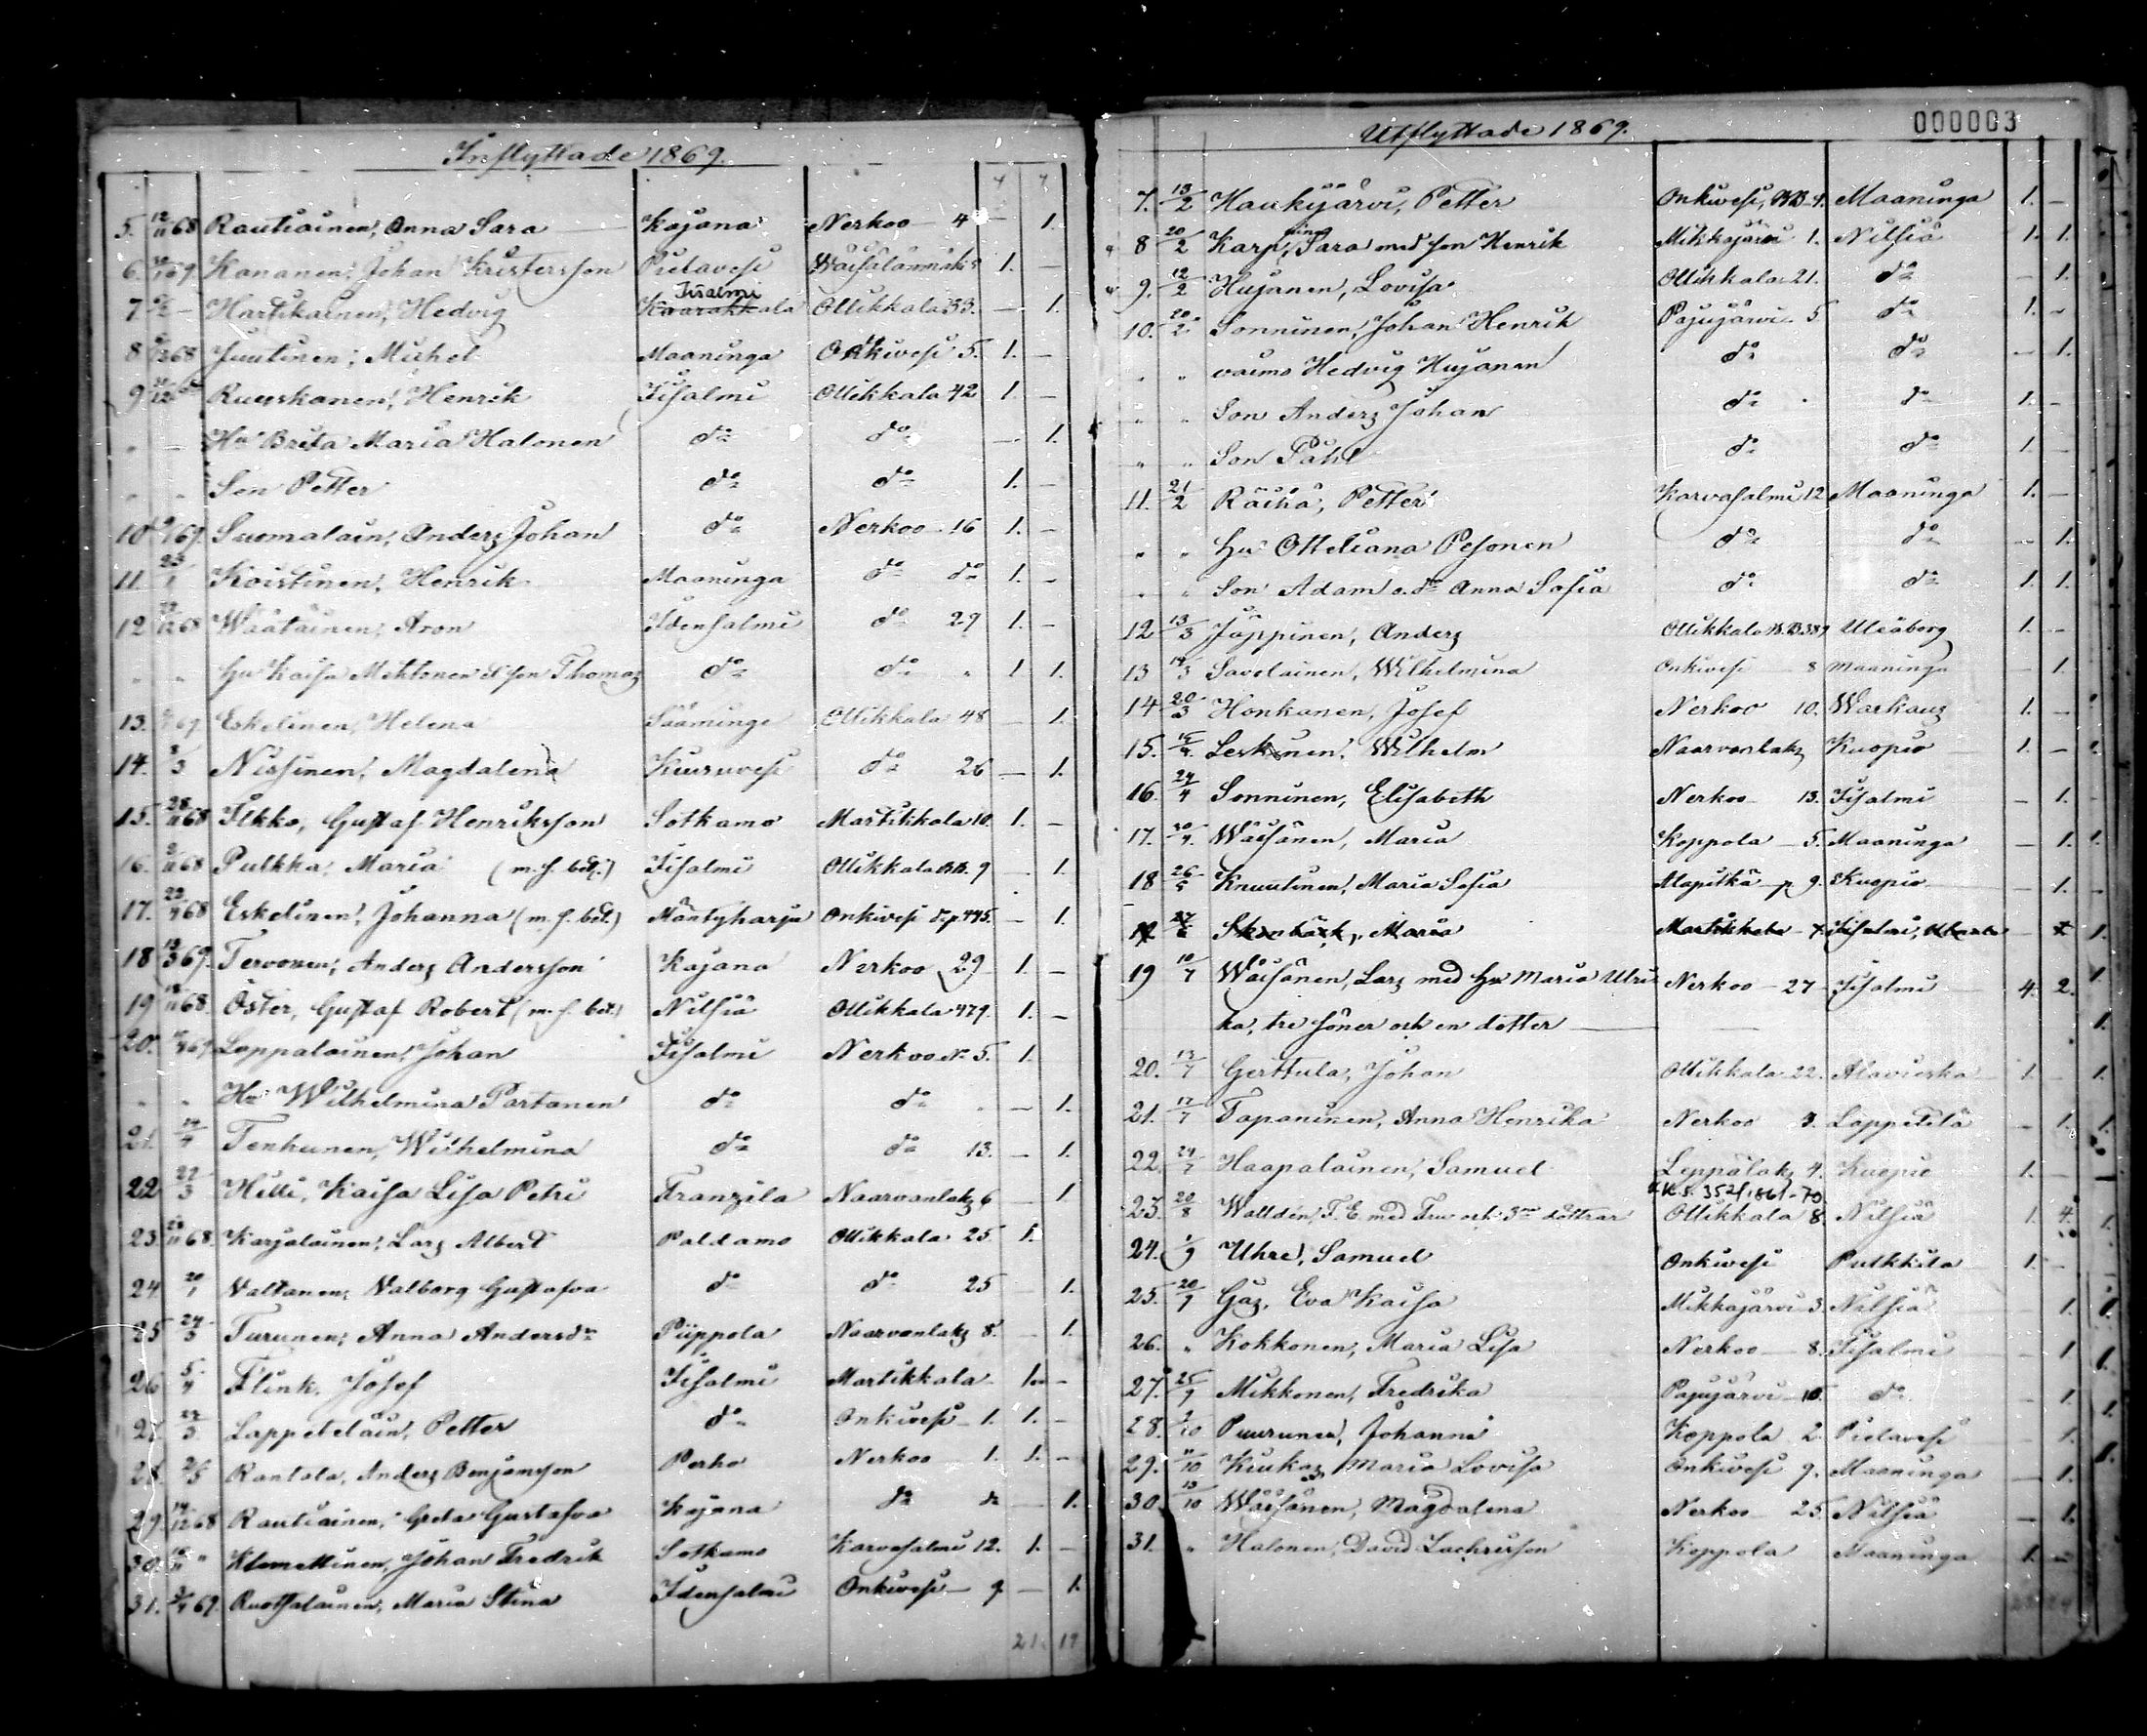 Inflyttade 1869.
5. 12/11 68 Rautiainen, Anna Sara Kajana Nerkoo 4 — 1.
6. 69. Kananen, Johan Kristersson Pielavesi Wäisälänmäki 1. —
7 Hartikainen, Hedvig Iisalmi Ollikkala 33. — 1.
8 68 Juutinen, Mickel Maaninga Onkivesi 5. 1. —
9 Ruuskanen, Henrik Iisalmi Ollikkala 42 1. —
" — Hu Brita Maria Halonen do do — 1.
" " Son Petter do do 1. —
10 69. Suomalain, Anders Johan do Nerkoo 16 1. —
11. 23/1 Koistinen, Henrik Maaninga do do 1. —
12 68 Wäätäinen, Aron Idensalmi do 29 1. —
" " Hu Kaisa Mehtonen o son Thomas do do " 1 1.
13. 69 Eskelinen, Helena Sääminge Ollikkala 48 — 1.
14. 8/3 Nissinen, Magdalena Kiuruvesi do 26 — 1.
15. 28/11 68 Ilkko, Gustaf Henriksson Sotkamo Martikkala 10. 1. —
16. 68 Pulkka, Maria (m. f. bet.) Iisalmi Ollikkala BB. 9 — 1.
17. 22/4 68 Eskelinen, Johanna (m. f. bet.) Mäntyharju Onkivesi d. p. 445. — 1.
18 13/3 69. Tervonen, Anders Andersson Kajana Nerkoo 29 1. —
19 68. Öster, Gustaf Robert (m. f. bet.) Nilsiä Ollikkala 479. 1. —
20. 69 Lappalainen, Johan Iisalmi Nerkoo No 5. 1.
" " Hu Wilhelmina Partanen do do " — 1.
21. 14/4 Tenhunen, Wilhelmina do do 13. — 1.
22 22/3 Hilli, Kaisa Lisa Petri Franzila Naarvanlaks 6 — 1.
23. 68. Karjalainen, Lars Albert Paldamo Ollikkala 25 1.
24 20/1 Valtanen, Valborg Gustafva do do 25 1.
25 24/3 Turunen, Anna Andersdr Piippola Naarvanlaks 8. 1.
26 5/4 Flink, Josef Iisalmi Martikkala 1. —
27 27/3 Lappetelain, Petter do Onkivesi 1. 1. —
28. 2/5 Rantala, Anders Benjamsson Perho Nerkoo 1. 1. —
29. 14/12 68 Rautiainen, Greta Gustafva Kajana do do — 1.
30. " Klemettinen, Johan Fredrik Sotkamo Karvasalmi 12. 1. —
31. 69. Ruotsalainen, Maria Stina Idensalmi Onkivesi 9 — 1.
21. 19
Utflyttade 1869.
000003
7. 13/2 Haukijärvi, Petter Onkivesi, BB. 4. Maaninga 1. —
8 20/2 Karp, Sara med son Henrik Mikkajärvi 1. Nilsiä 1. 1.
9. 12/2 Hujanen, Lovisa Ollikkala 21. do — 1.
10. 20/2 Sonninen, Johan Henrik Pajujärvi 5. do 1. —
" " vaimo Hedvig Hujanen do do — 1.
" " Son Anders Johan do do 1. —
" " Son Påhl do do 1. —
11. 21/2 Räihä, Petter Karvasalmi 12 Maaninga 1. —
" " Hu Otteliana Pesonen do do — 1.
" " Son Adam o. dr Anna Sofia do do 1. 1.
12 13/3 Jäppinen, Anders Ollikkala BB. 389 Uleåborg 1. —
13 14/3 Savolainen, Wilhelmina Onkivesi 8 Maaninga — 1.
14 20/3 Honkanen, Josef Nerkoo 10. Warkaus 1. —
15. Leskinen, Wilhelm Naarvanlaks Kuopio 1. —
16. 24/4 Sonninen, Elisabeth Nerkoo 13. Iisalmi — 1.
17. 30/4 Wäisänen, Maria Koppola 5. Maaninga — 1.
18 26/5 Knuutinen, Maria Sofia Alapitkä p 9. Kuopio — 1.
Maria Martikkala Iisalmi
19 10/7 Wäisänen, Lars med hu Maria Ulri Nerkoo 27 Iisalmi 4. 2.
ka, tre söner och en dotter —
20. 13/7 Gerttula, Johan Ollikkala 22. Alavieska 1. —
21. 17/7 Tapaninen, Anna Henrika Nerkoo 3. Lappetelä — 1.
22. 24/7 Haapalainen, Samuel Leppälaks 4. Kuopio 1. —
K.K. s. 352/1861-70.
23. 20/8 Walldén, F. E. med Fru och 3ne döttrar Ollikkala 8. Nilsiä 1. 4.
24. 1/9 Uhre, Samuel Onkivesi Pulkkila 1. —
25. 20/9 Gas, Eva Kaisa Mikkajärvi 3. Nilsiä 1.
26. " Kokkonen, Maria Lisa Nerkoo 8. Iisalmi — 1
27. 25/9 Mikkonen, Fredrika Pajujärvi 10. do — 1.
28. Puurunen, Johanna Koppola 2. Pielavesi — 1.
29. 11/10 Kiukas, Maria Lovisa Onkivesi 9. Maaninga — 1.
30. 13/10 Wäisänen, Magdalena Nerkoo 25. Nilsiä — 1.
31. " Halonen, David Zachrisson Koppola Maaninga 1. —